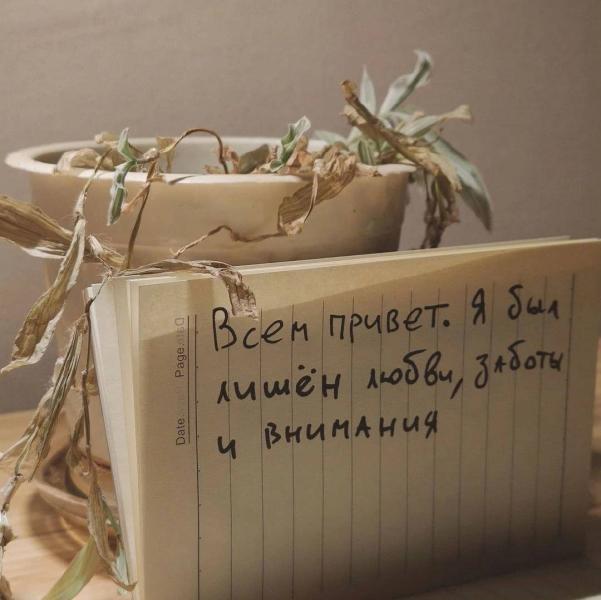 Всем привет. Я был
лишён любви, заботы
и внимания
Date
Page